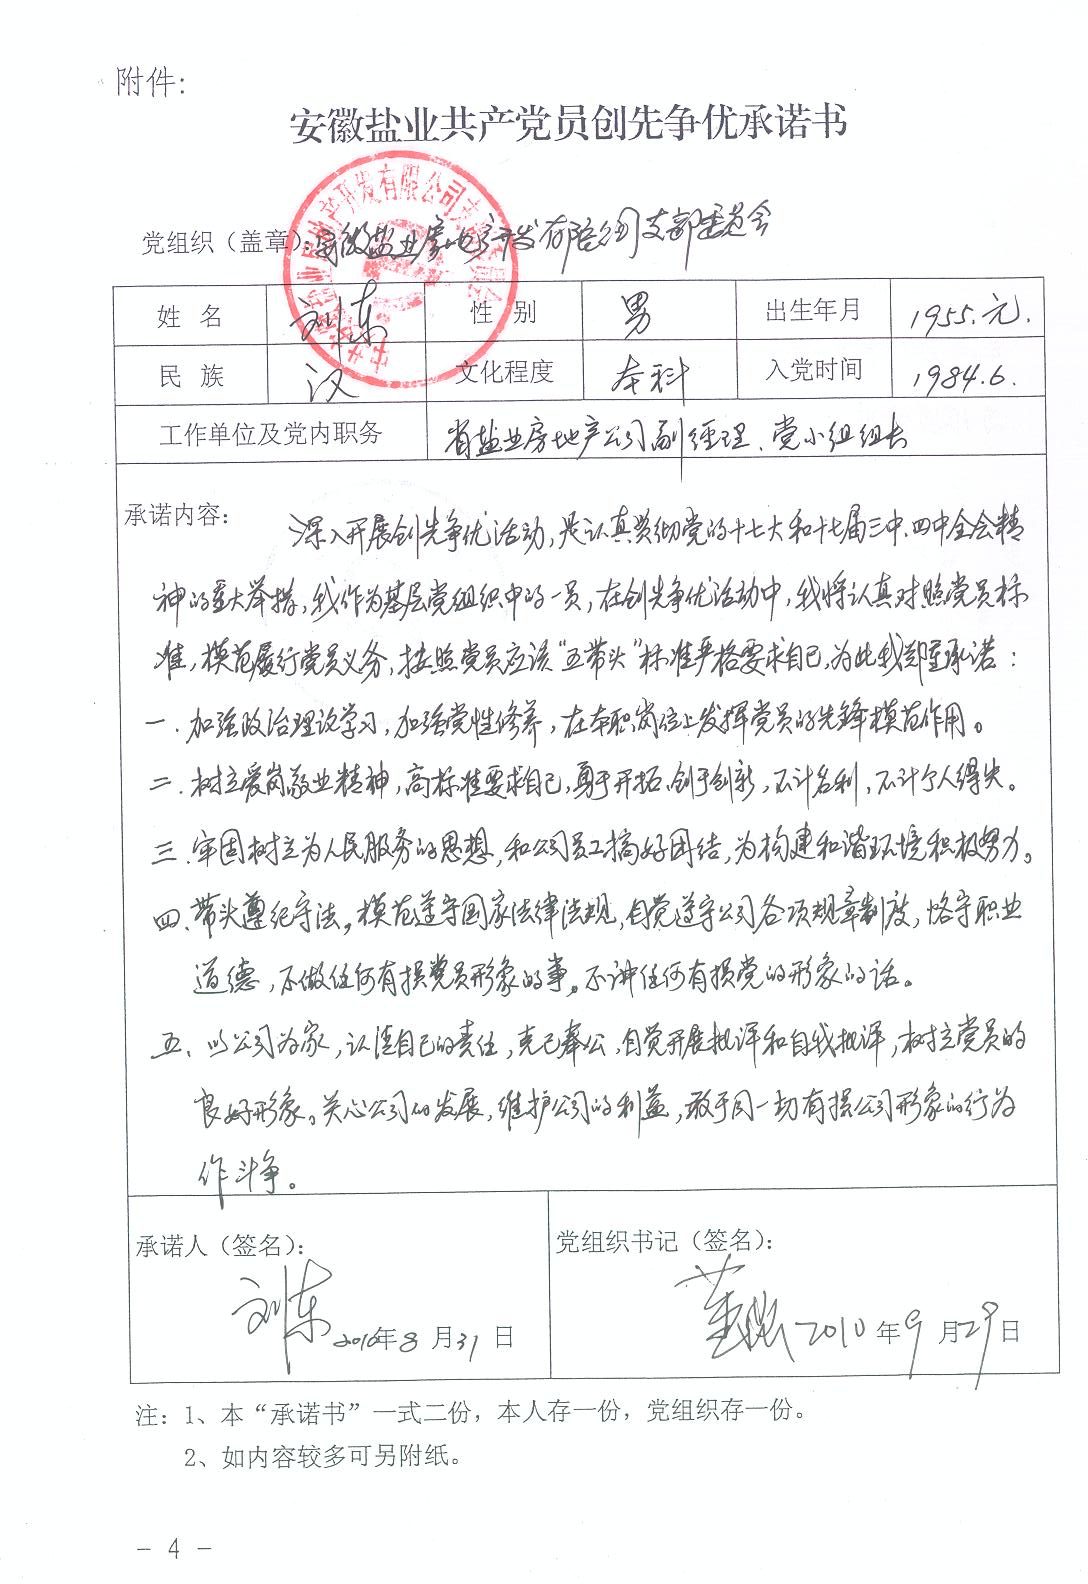 附件:
安徽盐业共产党员创先争优承诺书
党组织（盖章）：安徽盐业房地产开发有限公司支部委员会
姓 名 刘东 性 别 男 出生年月 1955.元.
民 族 汉 文化程度 本科 入党时间 1984.6.
工作单位及党内职务 省盐业房地产公司副经理、党小组组长
承诺内容： 深入开展创先争优活动，是认真贯彻党的十七大和十七届三中、四中全会精
神的重大举措，我作为基层党组织中的一员，在创先争优活动中，我将认真对照党员标
准，模范履行党员义务，按照党员应该“五带头”标准严格要求自己，为此我郑重承诺：
一、加强政治理论学习，加强党性修养，在本职岗位上发挥党员的先锋模范作用。
二、树立爱岗敬业精神，高标准要求自己，勇于开拓、创于创新，不计名利，不计个人得失。
三、牢固树立为人民服务的思想，和公司员工搞好团结，为构建和谐环境积极努力。
四、带头遵纪守法。模范遵守国家法律法规，自觉遵守公司各项规章制度，恪守职业
道德，不做任何有损党员形象的事。不讲任何有损党的形象的话。
五、以公司为家，认清自己的责任，克己奉公，自觉开展批评和自我批评，树立党员的
良好形象。关心公司的发展，维护公司的利益，敢于同一切有损公司形象的行为
作斗争。
承诺人（签名）：
党组织书记（签名）：
刘东 2010年8月31日
2010年9月29日
注：1、本“承诺书”一式二份，本人存一份，党组织存一份。
2、如内容较多可另附纸。
- 4 -